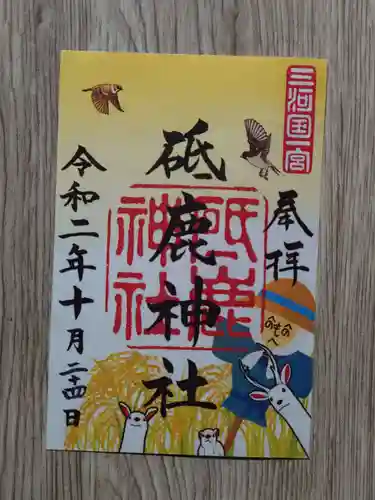 三河国一宮
奉拝
砥鹿神社
砥鹿
神社
令和二年十月二十四日
へのへの